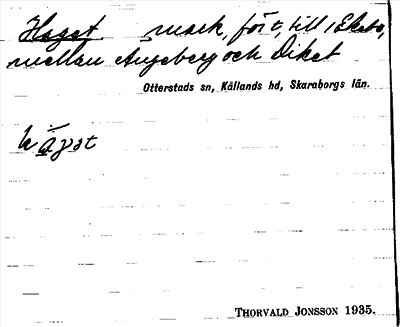 Haget mark, förr t, till 1 Ekebo,
mellan Augeberg och Diket
Otterstads sn, Kållands hd, Skaraborgs län.
THORVALD JONSSON 1935.